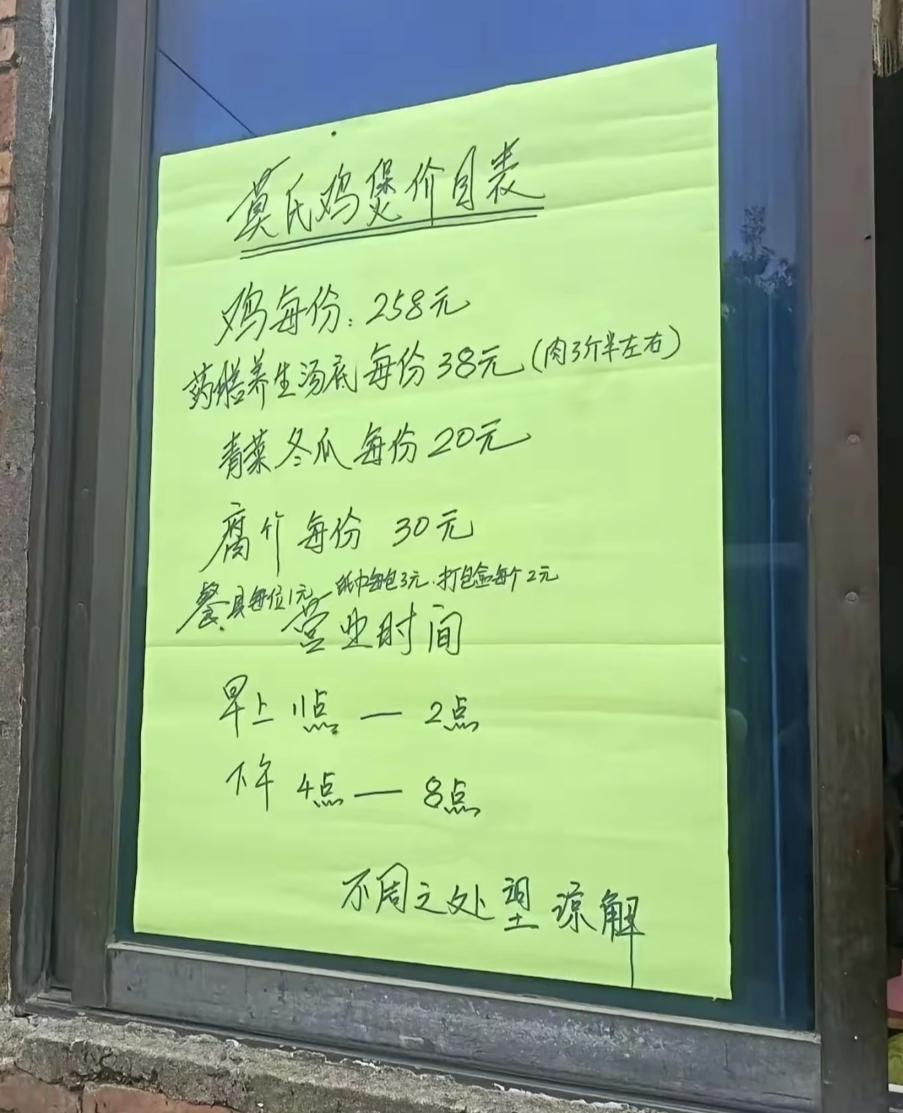 莫氏鸡煲价目表
鸡每份：258元
药膳养生汤底每份38元（肉3斤半左右）
青菜冬瓜每份20元
腐竹每份 30元
餐具每位1元 纸巾每包3元.打包盒每个2元
营业时间
早上 11点 — 2点
下午 4点 — 8点
不周之处望谅解